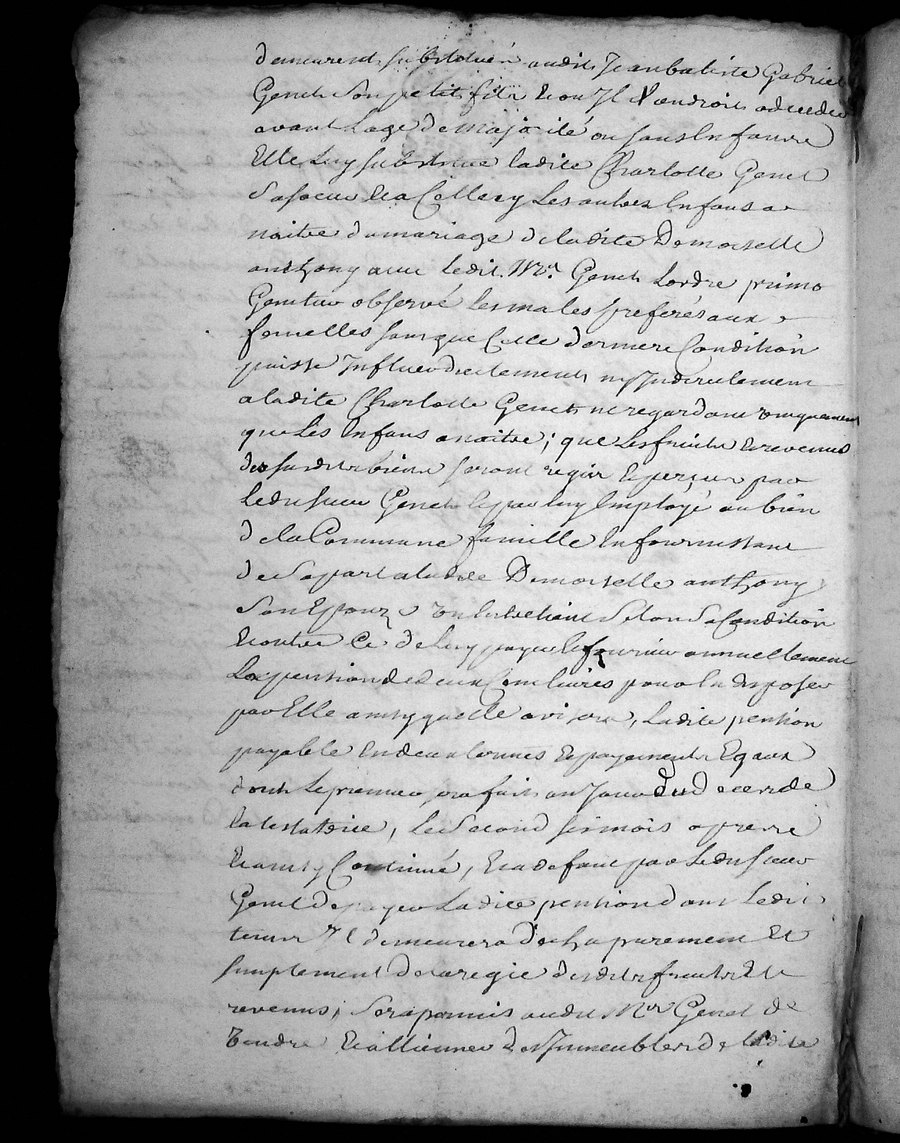 demeurent substitués audit Jean batiste Gabriel
Genet son petit fils et ou Il Viendroit a deceder
avant Lage de majorité ou sans Enfans
Elle Luy substitue ladite Charlotte Genet
sa soeur et a Celle cy Les autres Enfans a
naitre du mariage de ladite Demoiselle
anthony avec ledit Mr. Genet Lordre primo
Genitur observé les males preferés aux
femelles sans que Cette derniere Condition
puisse Influer directement ny Indirectement
a ladite Charlotte Genet ne regardant uniquement
que Les Enfans a naitre; que Les fruits et revenus
des susdits biens seront regis et perçus par
Ledit sieur Genet et par luy Employé au bien
de la Commune famille En fournissant
de sa part a ladite Demoiselle anthony
son Epouze un Entretient selon sa Condition
et outre ce de Luy payer et fournir annuellement
La pension de deux Cent livres pour En disposer
par Elle ainsy quelle avisera, Ladite pension
payable En deux termes et payements Egaux
dont Le premier sera fait au Jour du deces de
la testatrice, Le second six mois apres
et ainsy Continué, et a defaut par Ledit sieur
Genet de payer Ladite pension dans Ledit
terme Il demeurera dechu purement et
simplement de la regie desdits fruits et
revenus; sera permis audit Mr Genet de
Vendre et alliener des Immeubles de ladite